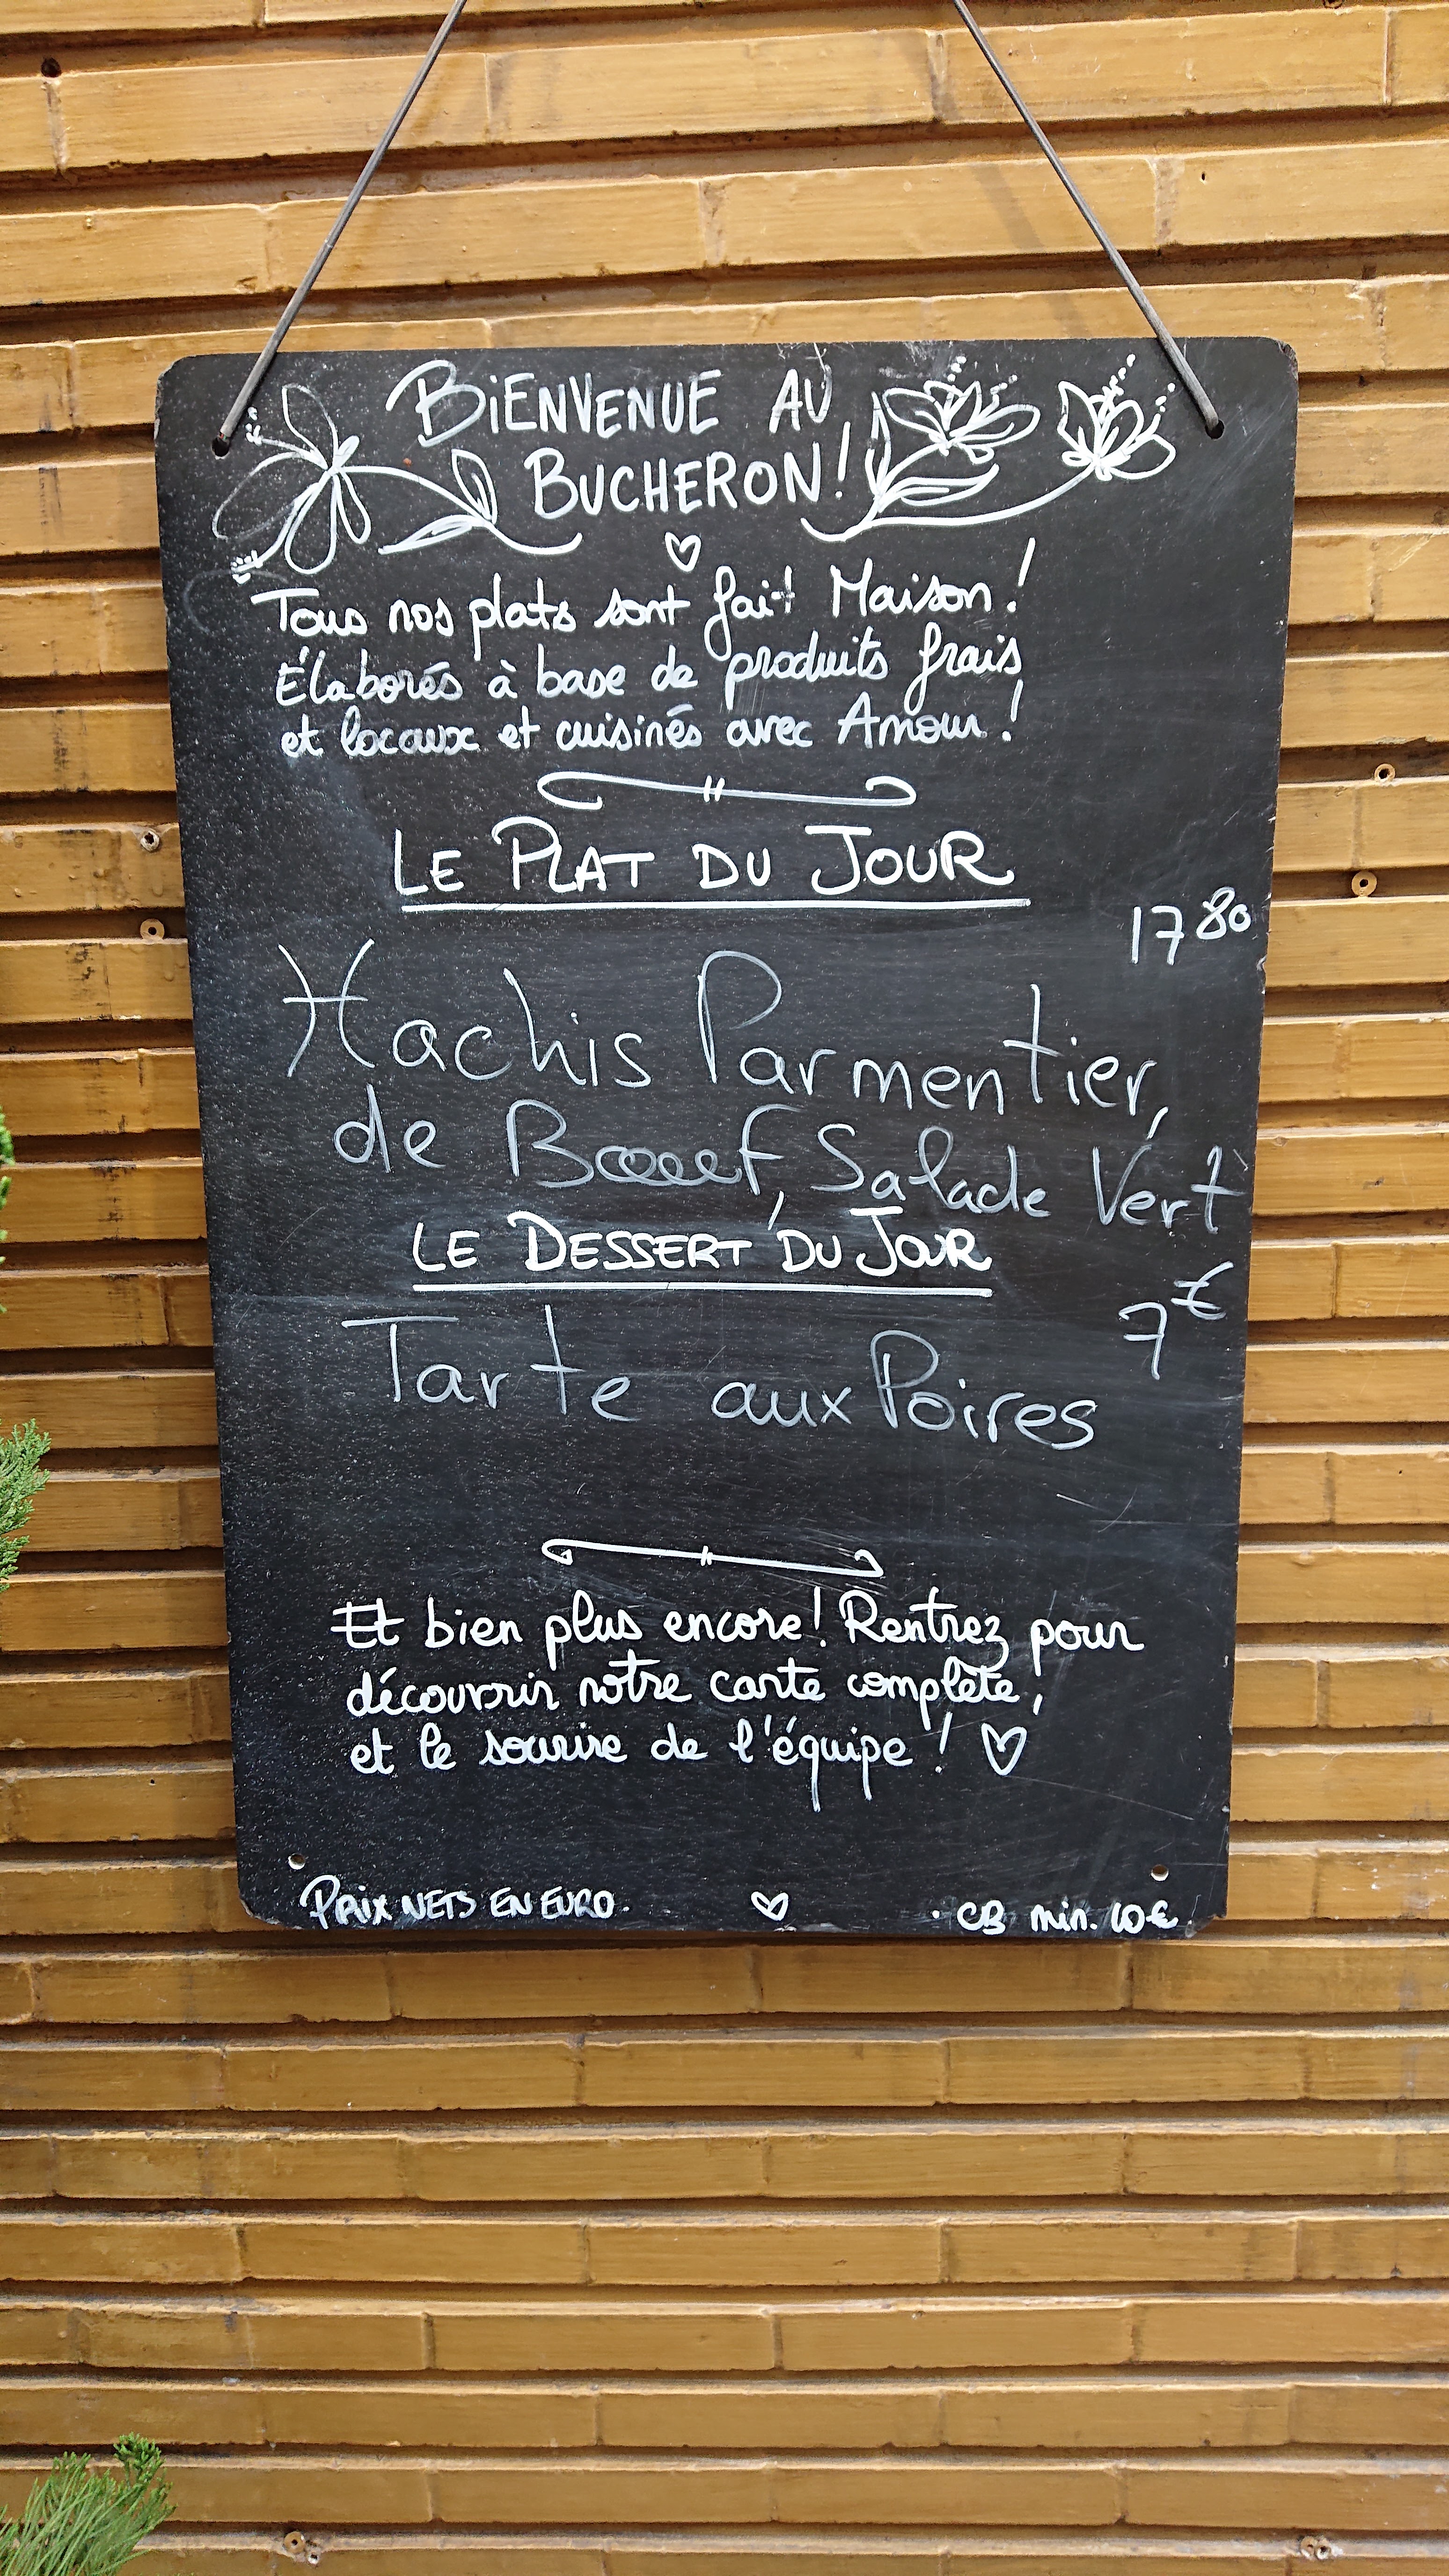 BiENVENUE AU
BUCHERON!
Tous nos plats sont fait Maison!
Élaborés à base de produits frais
et locaux et cuisinés avec Amour!
LE PLAT DU JOUR
17 80
Hachis Parmentier,
de Boeuf, Salade Vert
LE DESSERT DU JOUR
7€
Tarte aux Poires
Et bien plus encore! Rentrez pour
découvrir notre carte complète,
et le sourire de l'équipe!
PRIX NETS EN EURO.
. CB min. 10€.